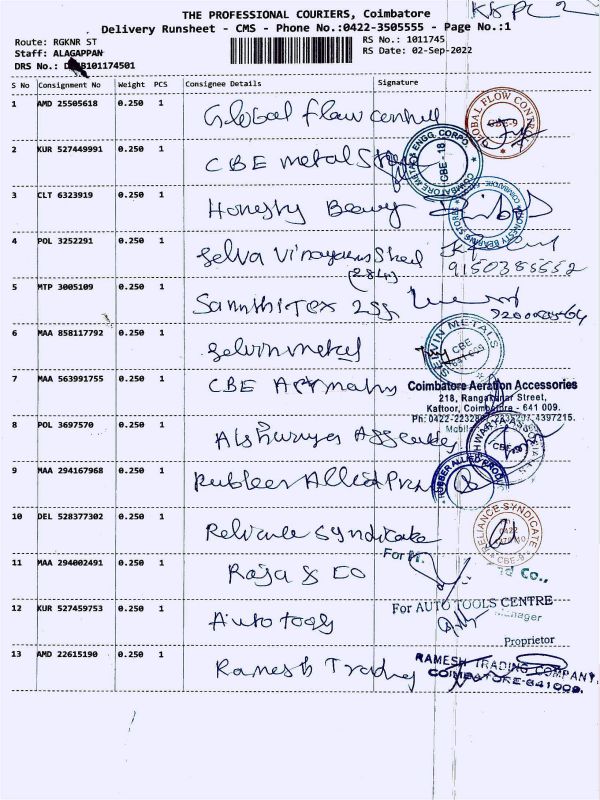 THE PROFESSIONAL COURIERS, Coimbatore
Delivery Runsheet - CMS - Phone No.:0422-3505555 - Page No.:1
Route: RGKNR ST
RS No.: 1011745
Staff: ALAGAPPAN
RS Date: 02-Sep-2022
DRS No.: B101174501
S No Consignment No Weight PCS Consignee Details Signature
1 AMD 25505618 0.250 1 Global flow
GLOBAL FLOW CBE-9
2 KUR 527449991 0.250 1 CBE metal
COIMBATORE METAL & ENGG. CORPO CBE - 18
3 CLT 6323919 0.250 1 Honesty
HONESTY BEARING STORES COIMBATORE
4 POL 3252291 0.250 1 Selva Vinayaga
9150385552
5 MTP 3005109 0.250 1
6 MAA 858117792 0.250 1 Selvin metal
SELWIN METALS CBE 641 009
7 MAA 563991755 0.250 1 CBE
Coimbatore Aeration Accessories
218, Rangakonar Street,
Kattoor, Coimbatore - 641 009.
Ph: 0422-2232 4397215.
Mobile
8 POL 3697570 0.250 1 Aishwarya
9 MAA 294167968 0.250 1 Rubber Allied
RUBBER ALLIED PROD
10 DEL 528377302 0.250 1 Reliance Syndicate
RELIANCE SYNDICATE 0422 CBE-9
11 MAA 294002491 0.250 1 Raja & Co
For M.
Co.,
12 KUR 527459753 0.250 1 Auto tools
For AUTO TOOLS CENTRE
Manager
Proprietor
13 AMD 22615190 0.250 1 Ramesh Trading
RAMESH TRADING COMPANY,
COIMBATORE-641009.